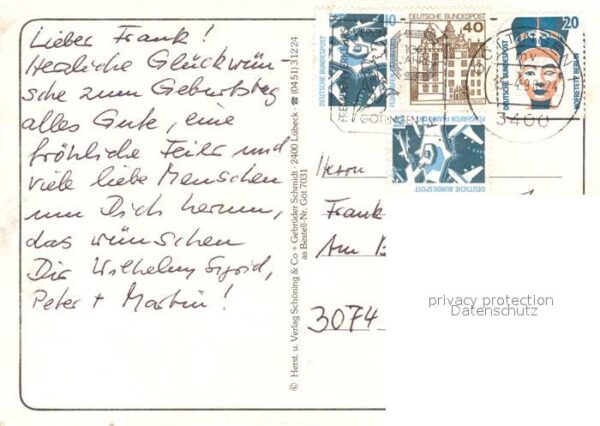 Lieber Frank!
Herzliche Glückwün-
sche zum Geburtstag
alles Gute, eine
fröhliche Feier und
viele liebe Menschen
um Dich herum,
das wünschen
Dir Wilhelm, Sigrid,
Peter + Martin!
© Herst. u. Verlag Schöning & Co + Gebrüder Schmidt · 2400 Lübeck · ☎ (0451) 31224
as Bestell-Nr. Göt 7031
10
DEUTSCHE BUNDESPOST
FLUGHAFEN FRANKFURT
DEUTSCHE BUNDESPOST
40
20
DEUTSCHE BUNDESPOST
NOFRETETE BERLIN
3400
FLUGHAFEN FRANKFURT
DEUTSCHE BUNDESPOST
Herrn
Frank
Am
3074
privacy protection
Datenschutz